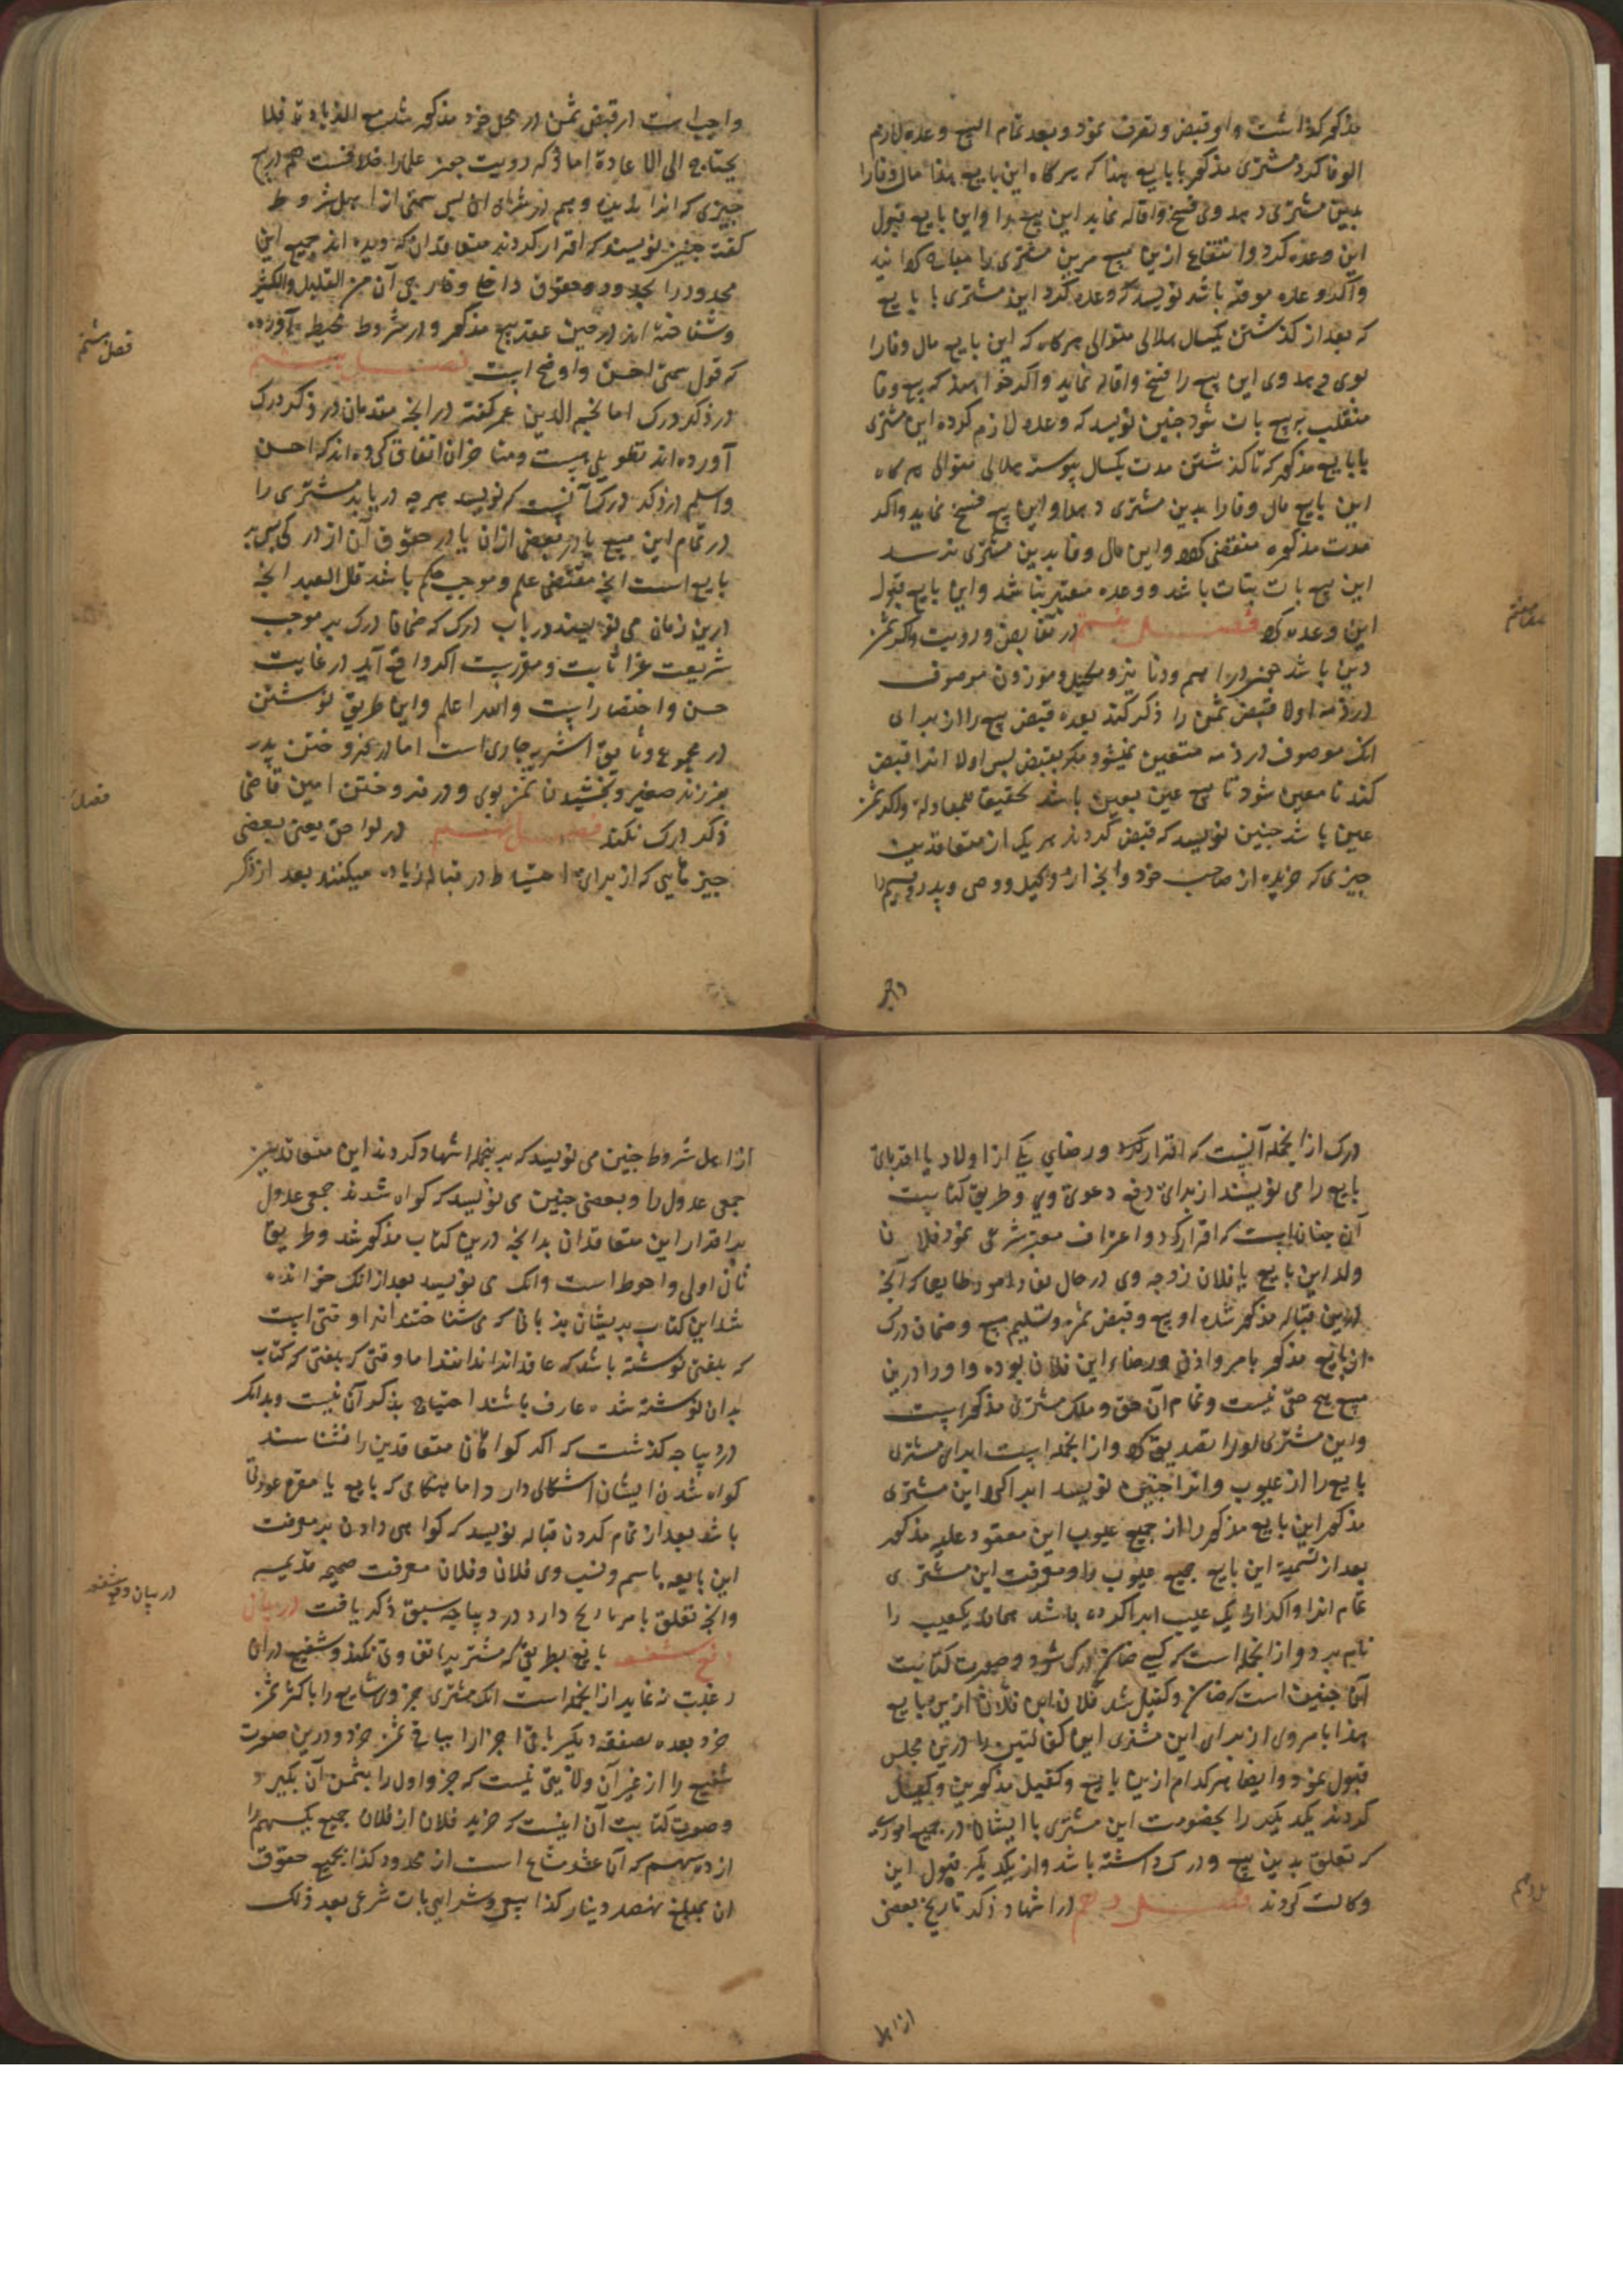 مذکور کذاشت و او قبض و تصرف نمود و بعد تمام البیع وعده لازم
الوفا کرد مشتری مذکور با بایع هذا که هرکاه این بایع هذا مال وفا را
بدین مشتری دهد وی فسخ و اقاله نماید این بیع را و این بایع قبول
این وعده کرد و انتفاع ازین مبیع مرین مشتری را مباح کردانید
و اکر وعده موقته باشد نویسد که وعده کرد این مشتری با بایع
که بعد از کذشتن یکسال هلالی متوالی هرکاه که این بایع مال وفا را
بوی دهد وی این بیع را فسخ و اقاله نماید و اکر خواهند که بیع وفا
منقلب ببیع بات شود جنین نویسد که وعده لازم کرده این مشتری
با بایع مذکور که تا کذشتن مدت یکسال پیوسته هلالی متوالی هرکاه
این بایع مال وفا را بدین مشتری دهد او این بیع فسخ نماید و اکر
مدت مذکوره منقضی کردد و این مال وفا بدین مشتری نرسد
این بیع بات بتات باشد و وعده معتبر نباشد و این بایع قبول
این وعده کرد فصل هفتم در تقابض و رویت و اکر ثمن
دین باشد جون دراهم و دنانیر و مکیل و موزون موصوف
در ذمه اولا قبض ثمن را ذکر کند بعده قبض بیع را از برای
انک موصوف در ذمه متعین نمیشود مکر بقبض بس اولا انرا قبض
کند تا معین شود تا بیع عین بعین باشد تحقیقا للمعادلة و اکر ثمن
عین باشد جنین نویسد که قبض کردند هر یک از متعاقدین
جیزی که خریده از صاحب خود و انجه از وکیل و وصی و پدر و قیم را
واجب
واجب است از قبض ثمن در محل خود مذکور شد مع الزیادة فلا
یحتاج الی الاعادة اما انکه رویت جون علما را خلافست هم در بیع
جیزی که انرا ندیده و هم در شراء ان بس سمتی از اهل شروط
کفته جنین نویسند که اقرار کردند متعاقدان که دیده اند جمیع این
محدود را بحدود و حقوق داخلی و خارجی آن من القلیل و الکثیر
و شناخته اند در حین عقد بیع مذکور و در شروط محیط آورده
که قول سمتی احسن و اوضح است فصل هشتم
در ذکر درک اما نجم الدین عمر کفته در انجه مقدمان در ذکر درک
آورده اند تطویلی هست و متاخران اتفاق کرده اند که احسن
و اسلم در ذکر درک آنست که نویسد هر جه دریابد مشتری را
در تمام این مبیع یا در بعضی ازان یا در حقوق آن از درکی بس بر
بایع است انجه مقتضی علم و موجب حکم باشد قال العبد انجه
درین زمان می نویسند در باب درک که ضمانا درک بر موجب
شریعت غرا ثابت و مقررست اکر واقع آید در غایت
حسن و اختصار است والله اعلم و این طریق نوشتن
در مجموع وثایق اشریه جاری است اما در فروختن پدر
بفرزند صغیر و بخشیدن ثمن بوی و در فروختن امین قاضی
ذکر درک نکند فصل نهم در لواحق یعنی بعضی
جیزهایی که از برای احتیاط در قباله زیاده میکنند بعد از ذکر
فصل هشتم
فصل
درک از انجمله آنست که اقرار کرد و رضای یکی از اولاد یا اقربای
بایع را می نویسند از برای دفع دعوی وی و طریق کتابت
آن جنان است که اقرار کرد و اعتراف معتبر شرعی نمود فلان
ولد این بایع یا فلان زوجه وی در حال نفاذ امور طایعا که آنجه
درین قباله مذکور شده از بیع و قبض ثمن و تسلیم مبیع و ضمان درک
ان بایع مذکور بامر و اذن و رضاء این فلان بوده و او را درین
مبیع هیج حقی نیست و تمام آن حق و ملک مشتری مذکور است
و این مشتری او را تصدیق کرد و از انجمله است ابراء مشتری
بایع را از عیوب و انرا جنین نویسد ابرا کرد این مشتری
مذکور این بایع مذکور را از جمیع عیوب این معقود علیه مذکور
بعد از تسمیه این بایع جمیع عیوب را و معرفت این مشتری
تمام انرا و اکر از یک عیب ابرا کرده باشد همان یک عیب را
نام برد و از انجمله است که کسی ضامن درک شود و صورت کتابت
آن جنین است که ضامن و کفیل شد فلان ابن فلان ازین بایع
هذا بامر وی از برای این مشتری این کفالتین را درین مجلس
قبول نمود و ایضا هر کدام ازین بایع و کفیل مذکورین وکیل
کردند یکدیکر را بخصومت این مشتری با ایشان در جمیع اموری
که تعلق بدین بیع و درک داشته باشد و از یکدیکر قبول این
وکالت کردند فصل دهم در اشهاد و ذکر تاریخ بعضی
از اهل
از اهل شروط جنین می نویسد که برینجمله اشهاد کردند این متعاقدین
جمعی عدول را و بعضی جنین می نویسد که کواه شدند جمعی عدول
بر اقرار این متعاقدان بدانجه درین کتاب مذکور شد و طریق
ثانی اولی و احوط است و انک می نویسد بعد از انک خوانده
شد این کتاب بر ایشان بزبانی که می شناختند انرا وقتی است
که بلغتی نوشته باشد که عاقدان ندانند اما وقتی که بلغتی که کتاب
بدان نوشته شده عارف باشند احتیاج بذکر آن نیست و بدانکه
در دیباجه کذشت که اکر کواهان متعاقدین را نشناسند
کواه شدن ایشان اشکالی دارد اما هنکامی که بایع یا مقر عورتی
باشد بعد از تمام کردن قباله نویسد که کواهی دادن بر معرفت
این بایعه باسم و نسب وی فلان و فلان معرفت صحیحه قدیمیه
و انجه تعلق بامر تاریخ دارد در دیباجه سبق ذکر یافت در بیان
دفع شفعه یا نوع بطریق که مشتری باتفاق وی نکند و شفیع در ان
رغبت ننماید از انجمله است انک مشتری جزوی شایع را باکثر ثمن
خرد بعده بصفقه دیکر باقی اجزا را بباقی ثمن خرد و درین صورت
شفیع را از غیر آن ولایتی نیست که جزو اول را بثمن آن بکیرد
و صورت کتابت آن اینست که خرید فلان از فلان جمیع یکسهم را
از ده سهم که آن عشر مشاع است از محدود کذا بجمیع حقوق
ان بمبلغ نهصد دینار کذا بیعی و شرایی بات شرعی بعد ذلک
در بیان دفع شفعه